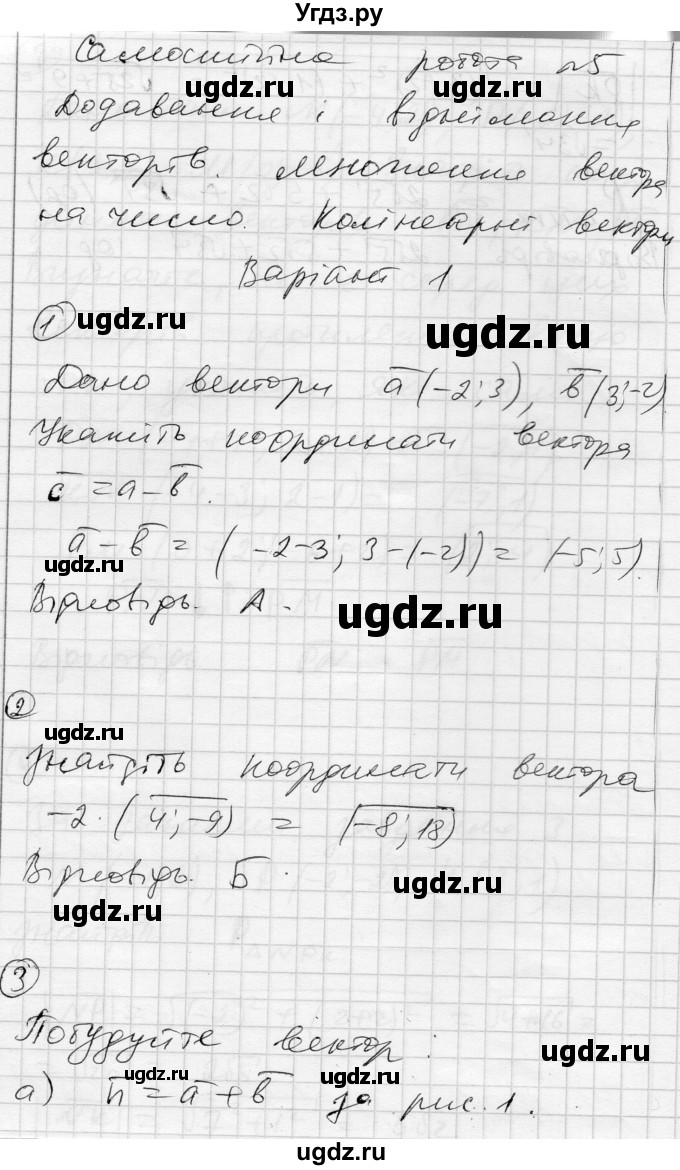 Угдз.ру
Самостійна робота №5
ugdz.ru ugdz.ru
Додавання і віднімання
векторів. Множення вектора
на число. Колінеарні вектори
Варіант 1
① ugdz.ru ugdz.ru
Дано вектори a̅(-2; 3), b̅(3; -2).
Укажіть координати вектора
c̅ = a - b̅.
a̅ - b̅ = (-2-3; 3-(-2)) = (-5; 5).
ugdz.ru
Відповідь. А. ugdz.ru
②
ugdz.ru
Знайдіть координати вектора
-2·(4; -9) = (-8; 18)
Відповідь. Б. ugdz.ru
ugdz.ru
③
Побудуйте вектор:
ugdz.ru
ugdz.ru ugdz.ru
а) n̅ = a̅ + b̅ за рис. 1.
ugdz.ru